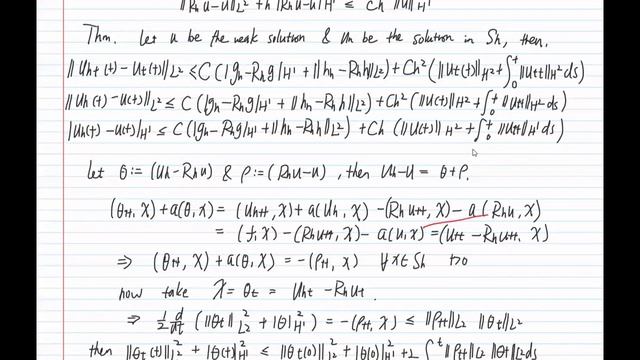 ‖Rhu-u‖L² + h |Rhu-u|H¹ ≤ Ch² ‖u‖H²
Thm. Let u be the weak solution & uh be the solution in Sh, then,
‖uht(t) - ut(t)‖L² ≤ C(|gh-Rhg|H¹ + ‖hh-Rhh‖L²) + Ch²(‖ut(t)‖H² + ∫₀ᵗ ‖utt‖H² ds)
‖uh(t) - u(t)‖L² ≤ C(|gh-Rhg|H¹ + ‖hh-Rhh‖L²) + Ch²(‖u(t)‖H² + ∫₀ᵗ ‖utt‖H² ds)
|uh(t) - u(t)|H¹ ≤ C(|gh-Rhg|H¹ + ‖hh-Rhh‖L²) + Ch (‖u(t)‖H² + ∫₀ᵗ ‖utt‖H¹ ds)
Let θ := (uh-Rhu) & ρ := (Rhu-u), then uh-u = θ+ρ.
(θtt, χ) + a(θ, χ) = (uhtt, χ) + a(uh, χ) - (Rhutt, χ) - a(Rhu, χ)
= (f, χ) - (Rhutt, χ) - a(u, χ) = (utt - Rhutt, χ)
⇒ (θtt, χ) + a(θ, χ) = -(ρtt, χ) ∀χ∈Sh t>0
now take χ = θt = uht - Rhut.
⇒ ½ d/dt (‖θt‖²L² + |θ|²H¹) = -(ρtt, χ) ≤ ‖ρtt‖L² ‖θt‖L²
then ‖θt(t)‖²L² + |θ(t)|²H¹ ≤ ‖θt(0)‖²L² + |θ(0)|²H¹ + 2 ∫₀ᵗ ‖ρtt‖L² ‖θt‖L² ds